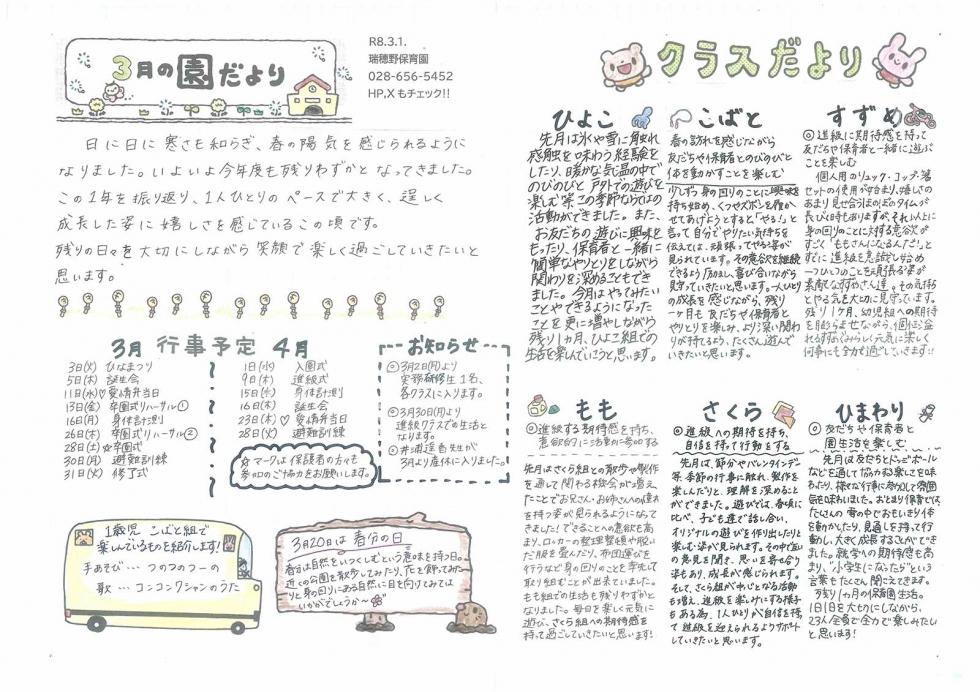 3月の園だより
R8.3.1.
瑞穂野保育園
028-656-5452
HP,Xもチェック!!
日に日に寒さも和らぎ、春の陽気を感じられるように
なりました。いよいよ今年度も残りわずかとなってきました。
この1年を振り返り、1人ひとりのペースで大きく、逞しく
成長した姿に嬉しさを感じているこの頃です。
残りの日々を大切にしながら笑顔で楽しく過ごしていきたいと
思います。
3月 行事予定 4月
3日(火) ひなまつり
5日(木) 誕生会
11日(水)♡愛情弁当日
13日(金) 卒園式リハーサル①
16日(月) 身体計測
26日(木) 卒園式リハーサル②
28日(土)☆卒園式
30日(月) 避難訓練
31日(火) 修了式
1日(水) 入園式
9日(木) 進級式
15日(水) 身体計測
16日(木) 誕生会
23日(木)♡愛情弁当日
28日(火) 避難訓練
☆マークは保護者の方々も
参加のご協力をお願いします。
お知らせ
◎3月2日(月)より
実務研修生1名、
各クラスに入ります。
◎3月30日(月)より
進級クラスでの生活と
なります。
3月より産休に入りました。
1歳児 こばと組で
楽しんでいるものを紹介します!
手あそび…つのつのつのーの
歌…コンコンクシャンのうた
3月20日は 春分の日
春分は自然をいつくしむという意味を持つ日。
近くの公園を散歩してみたり、花を飾ってみた
りと身の回りにある自然に目を向けてみては
いかがでしょうか〜
クラスだより
ひよこ
先月は氷や雪に触れ
感触を味わう経験を
したり、暖かな気温の中で
のびのびと戸外での遊びを
楽しむ等この季節ならではの
活動ができました。また、
お友だちの遊びに興味を
もったり、保育者と一緒に
簡単なやりとりをしながら
関わりを深めることもでき
ました。今月はやってみたい
ことやできるようになった
ことを更に増やしながら
残り1ヵ月、ひよこ組での
生活を楽しんでいこうと思います。
こばと
春の訪れを感じながら
友だちや保育者とのびのびと
体を動かすことを楽しむ
少しずつ身の回りのことに興味を
持ち始め、くつやズボンを履か
せてあげようとすると「やる!」と
言って自分でやりたい気持ちを
伝えては、頑張ってやる姿が
見られています。その意欲を継続
できるよう励まし、喜び合いながら
見守っていきたいと思います。一人ひとり
の成長を感じながら、残り
一ヶ月も友だちや保育者と
やりとりを楽しみ、より深い関わ
りが持てるよう、たくさん遊んで
いきたいと思います。
すずめ
◎進級に期待感を持って
友だちや保育者と一緒に遊ぶ
ことを楽しむ
個人用のリュック・コップ・箸
セットの使用が始まり、嬉しさの
あまり見せ合うほのぼのタイムが
長びく時もありますが、それ以上に
身の回りのことに対する意欲が
すごく「ももさんになるんだ!」と
すでに進級を意識し始め
一つひとつのことを頑張る姿が
素敵なすずめさん達。その気持ち
とやる気を大切に見守っています。
残り1ヶ月、幼児組への期待
何事にも全力で過ごしていきます!!
もも
◎進級する期待感を持ち、
意欲的に活動に参加する
先月はさくら組との散歩や製作
を通して関わる機会が増え
たことでお兄さん・お姉さんへの憧れ
を持つ姿が見られるようになって
きました!できることへの意欲も高
まり、ロッカーの整理整頓や脱い
だ服を畳んだり、布団運びを
行うなど身の回りのことを率先して
取り組むことが出来ていました。
もも組での生活も残りわずかと
なりました。毎日を楽しく元気に
遊び、さくら組への期待感を
持って過ごしていきたいと思います!
さくら
◎進級への期待を持ち、
自信を持って行動をする
先月は、節分やバレンタインデー
等、季節の行事に触れ、製作を
楽しんだりと、理解を深めること
ができました。遊びでは、春頃に
比べ、子ども達で話し合い、
オリジナルの遊びを作り出したりと
楽しむ姿が見られます。その中で互い
の意見を聞き、思いを寄せ合う
姿もあり、成長が感じられます。
そして、さくら組が中心となる活動
も増え、進級を楽しみにする様子
もある為、1人ひとりが自信を持っ
て進級を迎えられるようサポート
していきたいと思います。
ひまわり
◎友だちや保育者と
園生活を楽しむ
先月は友だちとドッヂボール
などを通して協力する楽しさを味
わったり、様々な行事に参加して雰囲
気を味わいました。おとまり保育では
たくさんの雪の中でおもいきり体
を動かしたり、見通しを持って行
動し、大きく成長することができ
ました。就学への期待感も高
まり、“小学生になったら”という
言葉もたくさん聞こえてきます。
残り1ヵ月の保育園生活。
1日1日を大切にしながら、
23人全員で全力で楽しみたい
と思います!